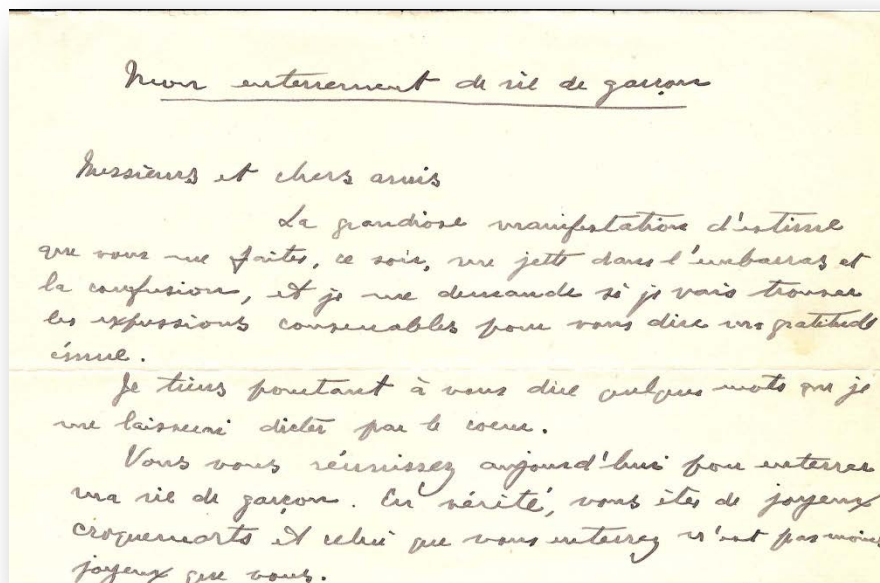 Mon enterrement de vie de garçon
Messieurs et chers amis
La grandiose manifestation d'estime
que vous me faites, ce soir, me jette dans l'embarras et
la confusion, et je me demande si je vais trouver
les expressions convenables pour vous dire ma gratitude
émue.
Je tiens pourtant à vous dire quelques mots que je
me laisserai dicter par le coeur.
Vous vous réunissez aujourd'hui pour enterrer
ma vie de garçon. En vérité, vous êtes de joyeux
croquemorts et celui que vous enterrez n'est pas moins
joyeux que vous.